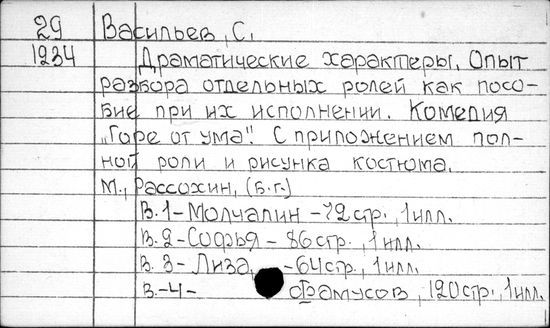 29 Васильев, С.
1234 Драматические характеры. Опыт
разбора отдельных ролей как посо-
бие при их исполнении. Комедия
„Горе от ума". С приложением пол-
ной роли и рисунка костюма.
М., Рассохин, (б.г.)
В. 1 - Молчалин - 72 стр., 1 илл.
В. 2 - Софья - 86 стр., 1 илл.
В. 3 - Лиза, - 64 стр., 1 илл.
В. - 4 - Фамусов, 120 стр., 1 илл.